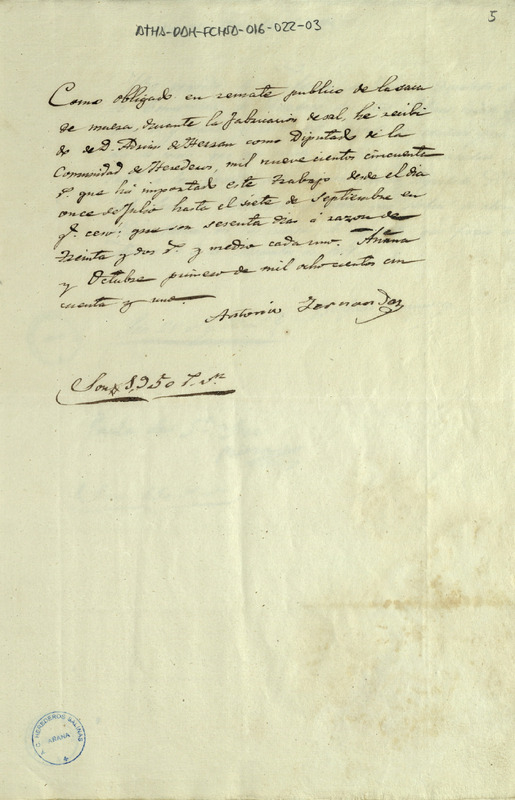 5
ATHA-DAH-FCHSD-016-022-03
Como obligado en remate publico de la saca
de muera, durante la fabricacion de sal, hé recibi
do de D. Adrian de Herran como Diputado de la
Comunidad de Herederos, mil nuevecientos cincuenta
r.s que há importado este trabajo desde el dia
once de Julio hasta el siete de Septiembre en
q.e cesó: que son sesenta dias á razon de
treinta y dos r.s y medio cada uno. Añana
y Octubre primero de mil ochocientos cin
cuenta y uno.
Antonio Fernandez
Son 1,950 r.s vn
HEREDEROS SALINAS
AÑANA